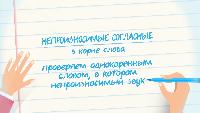 НЕПРОИЗНОСИМЫЕ СОГЛАСНЫЕ
в корне слова
Проверяем однокоренным
словом, в котором
непроизносимый звук